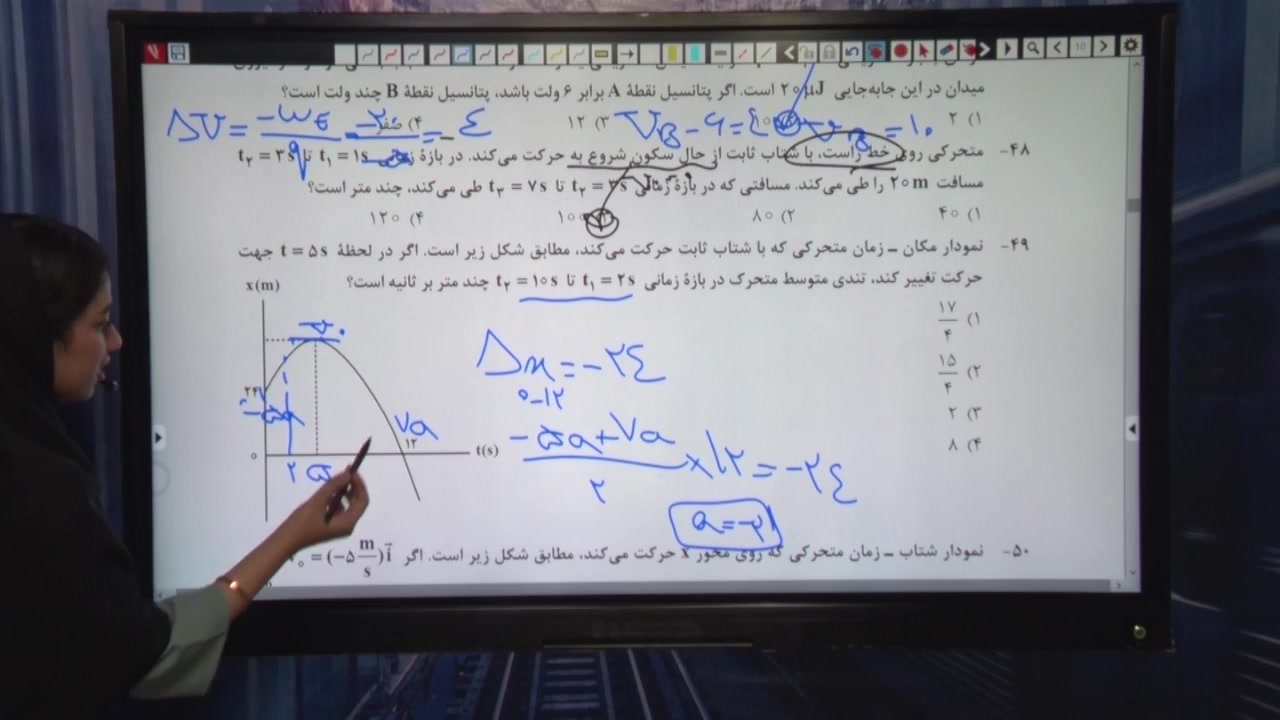 میدان در این جابه‌جایی ۲۰ μJ است. اگر پتانسیل نقطهٔ A برابر ۶ ولت باشد، پتانسیل نقطهٔ B چند ولت است؟
۱) ۲
۳) ۱۲
۴) صفر
ΔV = −W_E / q = −۲۰ = −٤
V_B − ۶ = ٤
V_B = ۱۰
۴۸- متحرکی روی خط راست، با شتاب ثابت از حال سکون شروع به حرکت می‌کند. در بازهٔ زمانی t₁ = ۱s تا t₂ = ۳s
مسافت ۲۰m را طی می‌کند. مسافتی که در بازهٔ زمانی t₂ = ۳s تا t₃ = ۷s طی می‌کند، چند متر است؟
۱) ۴۰
۲) ۸۰
۱۰۰
۴) ۱۲۰
۴۹- نمودار مکان ــ زمان متحرکی که با شتاب ثابت حرکت می‌کند، مطابق شکل زیر است. اگر در لحظهٔ t = ۵s جهت
حرکت تغییر کند، تندی متوسط متحرک در بازهٔ زمانی t₁ = ۲s تا t₂ = ۱۰s چند متر بر ثانیه است؟
۱) ۱۷/۴
۲) ۱۵/۴
۳) ۲
۴) ۸
x(m)
۲۴
−۵a
۰
۲
۵
۷a
۱۲
t(s)
Δx = −۲٤
۰−۱۲
(−۵a + ۷a) / ۲ × ۱۲ = −۲٤
a = −۲
۵۰- نمودار شتاب ــ زمان متحرکی که روی محور x حرکت می‌کند، مطابق شکل زیر است. اگر = (−۵ m/s) i